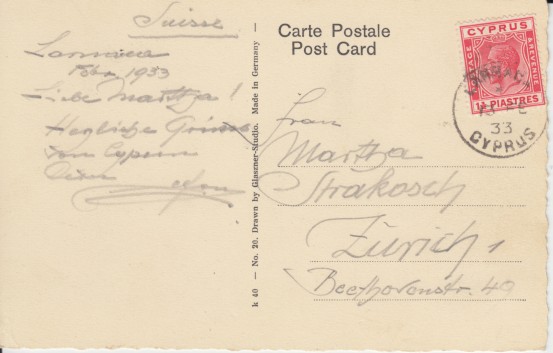 Suisse
Larnaca
Febr. 1933
Liebe Maritza!
Herzliche Grüsse
von Cypern
Dein
Carte Postale
Post Card
k 40 — No. 20. Drawn by Glaszner-Studio. Made In Germany —
CYPRUS
POSTAGE
& REVENUE
1½ PIASTRES
LARNACA
33
CYPRUS
Frau
Maritza
Strakosch
Zürich 1
Beethovenstr. 49